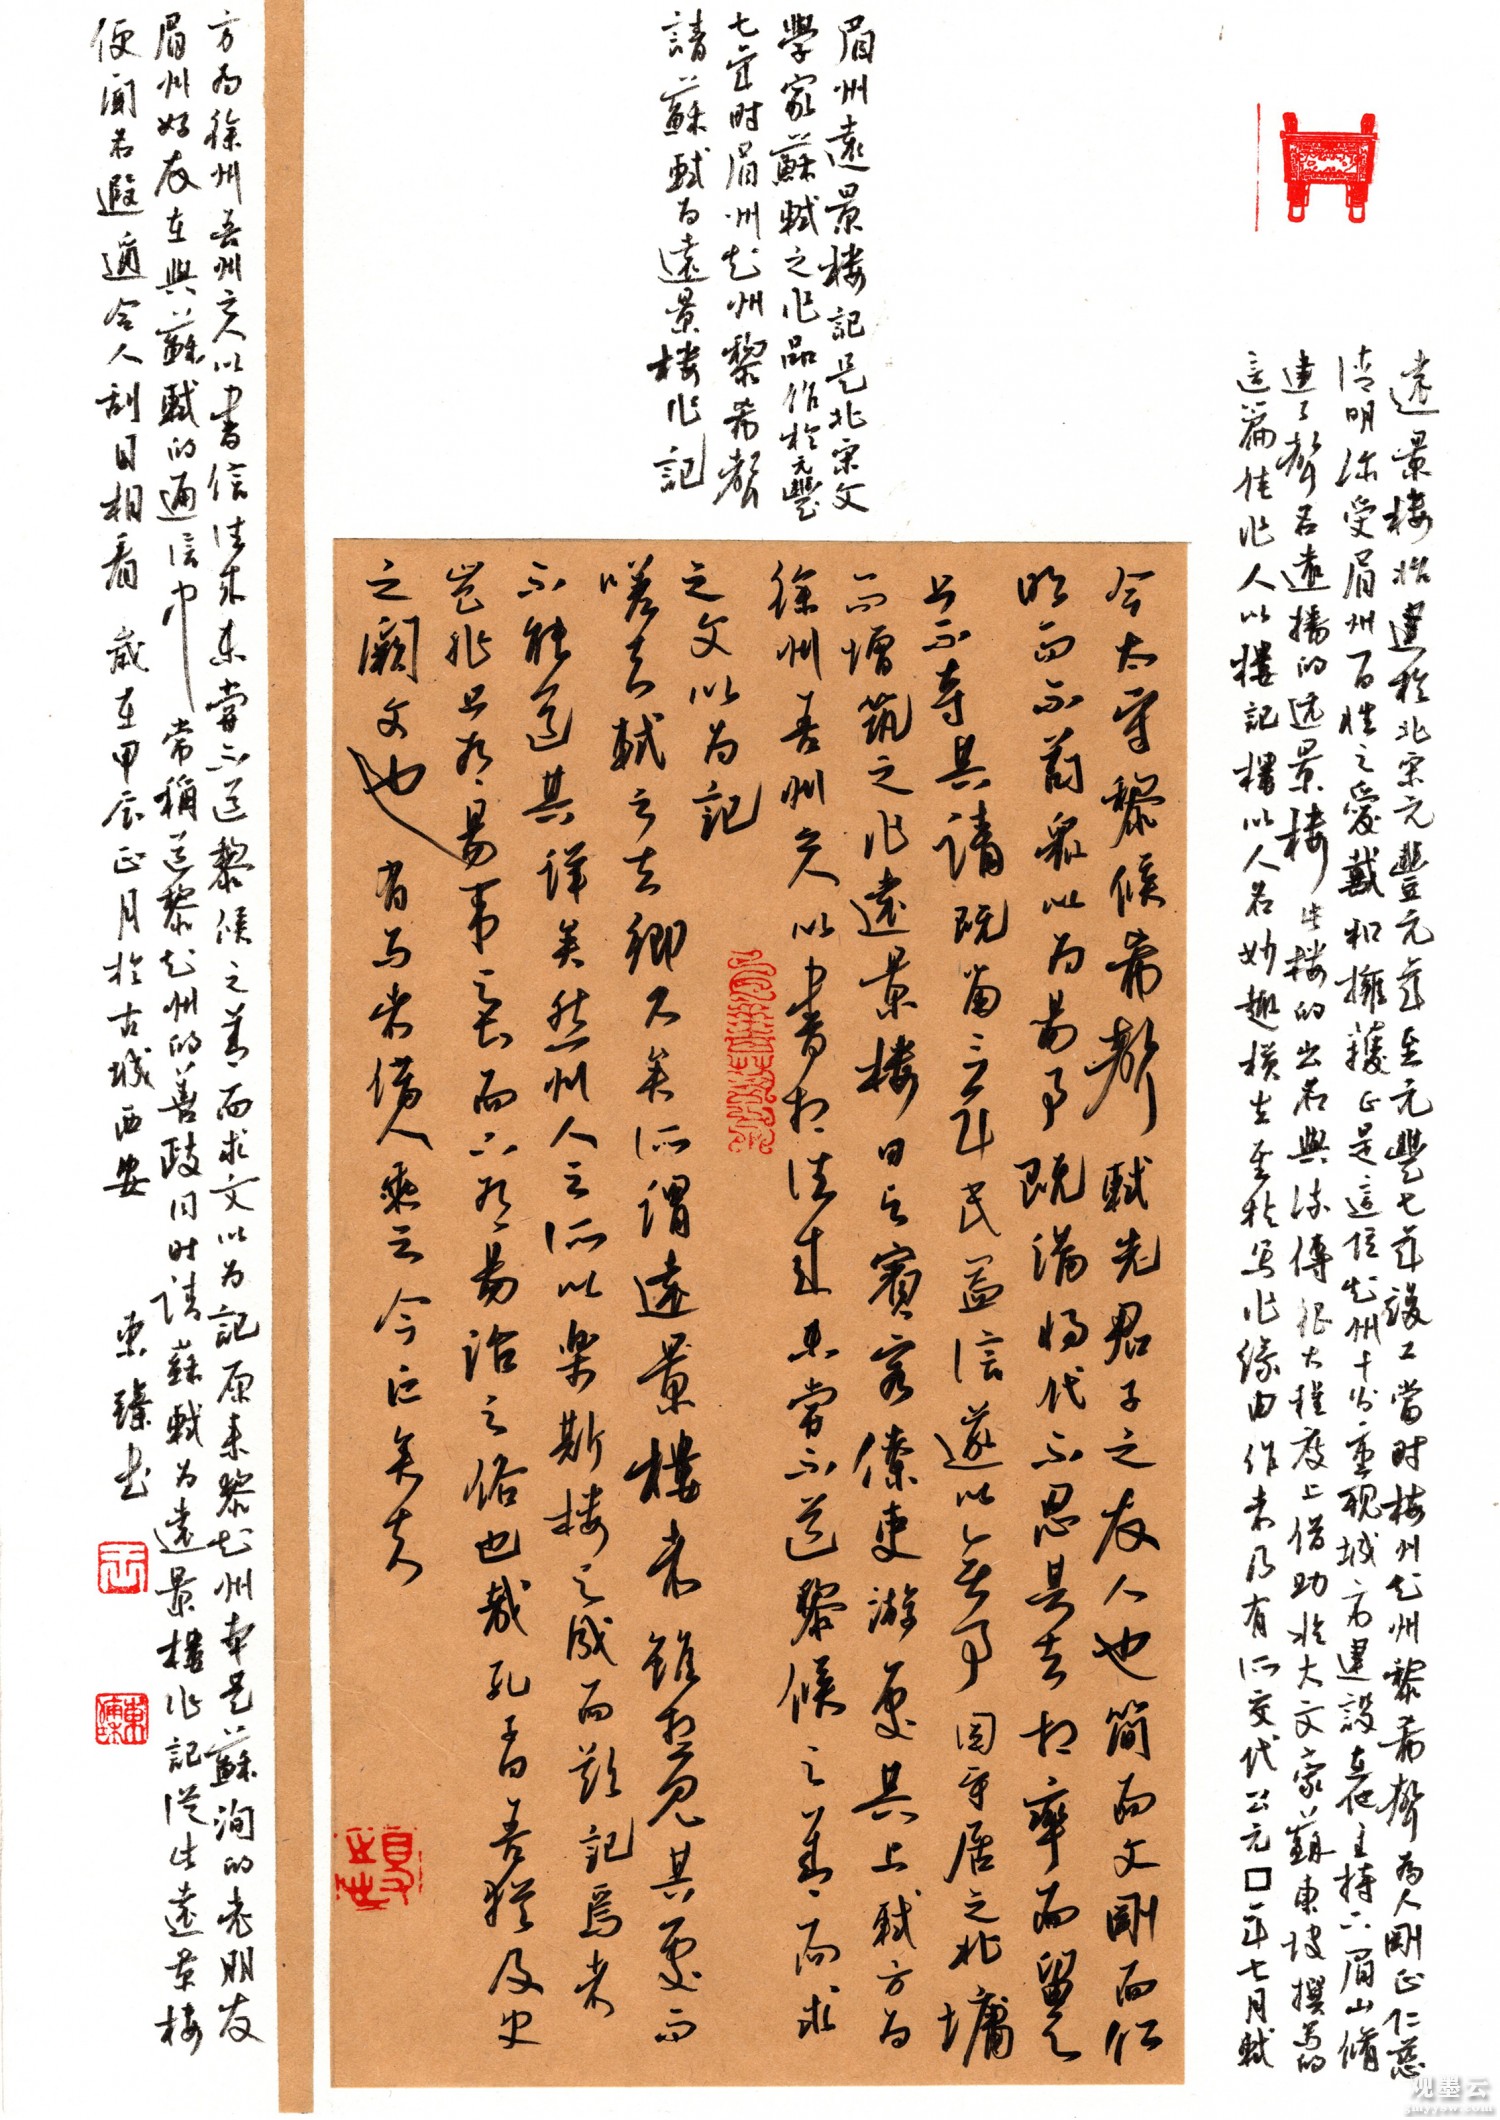 遠景楼始建於北宋元豐元年至元豐七年竣工當时梅州知州黎希聲為人剛正仁慈
清明深受眉州百姓之愛戴和擁護正是這位知州十分重視城方建設在他主持下眉山脩
建了聲名遠播的远景楼此楼的出名與流傳很大程度上借助於大文家蘇東坡撰寫的
這篇佳作人以樓記樓以人名妙趣横生至於写作緣由作者乃有所交代公元□年七月軾
眉州遠景楼記是北宋文
學家蘇軾之作品作於元豐
七年时眉州知州黎希聲
請蘇軾为遠景楼作記
今太守黎侯希聲軾先君子之友人也簡而文剛而仁
明而不苟眾以为易事既满將代不忍其去相率而留之
上不奪其請既留三年民益信遂以無事因守居之北墉
而增筑之作遠景楼日與賓客僚吏游處其上軾方为
徐州吾州之人以書相往来未嘗不道黎侯之善而求
之文以为記
嗟夫軾之去鄉久矣所謂遠景樓者雖想見其處而
不能道其詳矣然州人之所以樂斯楼之成而欲記焉者
豈非上有易事之長而下有易治之俗也哉孔子曰吾猶及史
之闕文也有马者借人乘之今亡矣夫
方为徐州吾州之人以書信往来未嘗不道黎侯之善而求文以为記原来黎知州本是蘇洵的老朋友
眉州好友在與蘇軾的通信中常稱道黎知州的善政同时請蘇軾为遠景樓作記從此遠景楼
便聞名遐邇令人刮目相看 歲在甲辰正月於古城西安 東臻书
观墨云
gmyyow.com